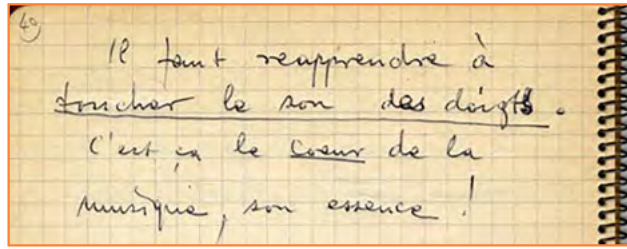 40
Il faut reapprendre à
toucher le son des doigts.
C'est ça le coeur de la
musique, son essence !